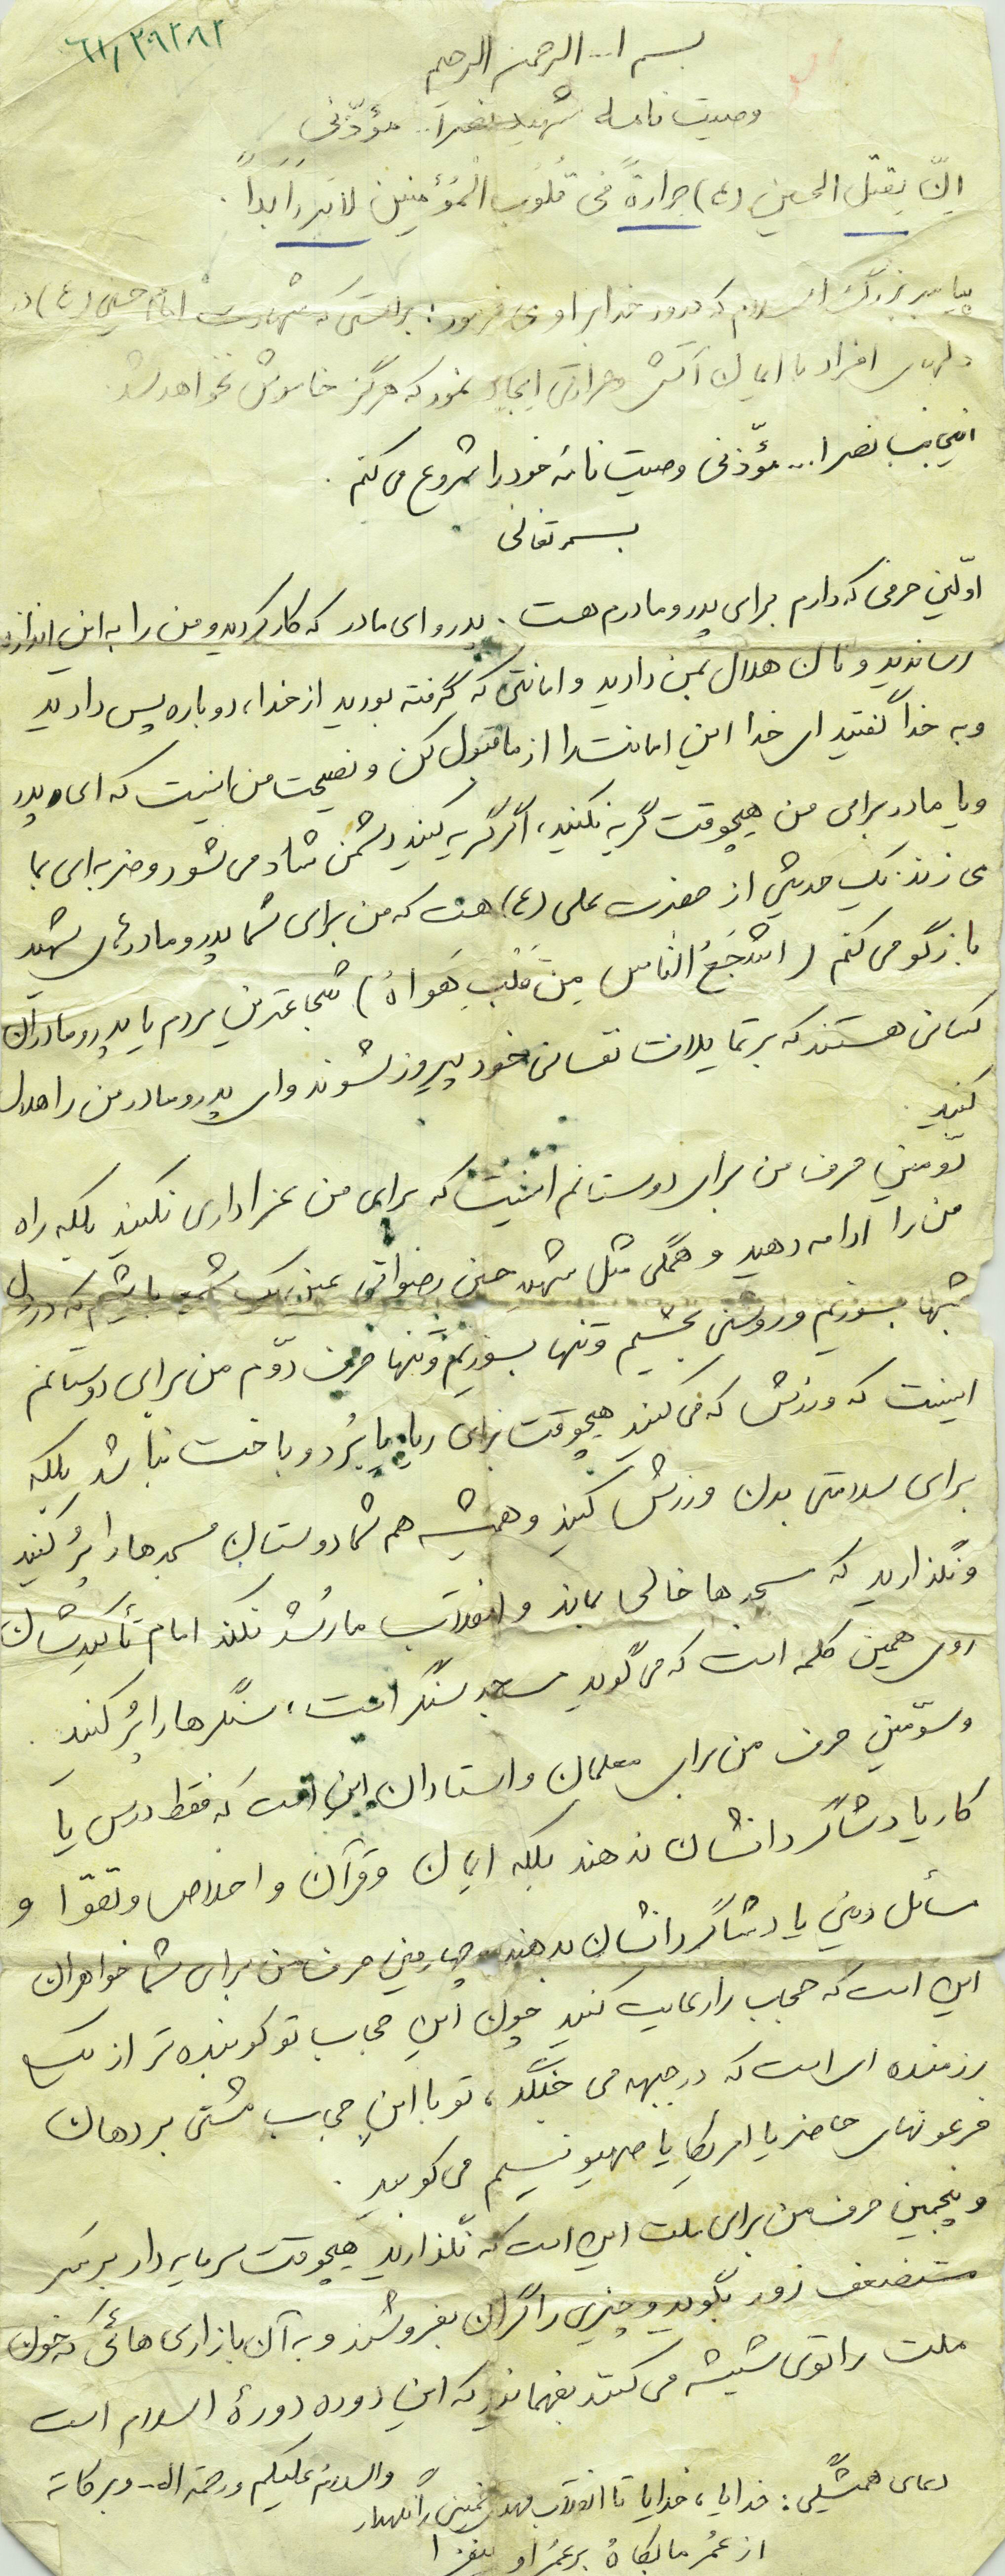 ٦١/٢٩٢٨٢
بسم ا... الرحمن الرحیم
وصیت نامه شهید نصرا... مؤذّنی
اِنَّ بِقتل الحسین (ع) حرارةً فی قُلُوبِ الْمُؤْمِنین لا تَبرَدُ اَبداً.
پیامبر بزرگ اسلام که درود خدا بر او می فرمود: براستی که شهادت امام حسین (ع) در
دلهای افراد با ایمان آتش و حرارتی ایجاد نمود که هرگز خاموش نخواهد شد.
اینجانب نصرا... مؤذّنی وصیت نامۀ خود را شروع می کنم.
بسمه تعالی
اوّلین حرفی که دارم برای پدر و مادرم هست. پدر و ای مادر که کار کردید و من را به این اندازه
رساندید و نان هلال بمن دادید و امانتی که گرفته بودید از خدا، دوباره پس دادید
و به خدا گفتید ای خدا این امانت را از ما قبول کن و نصیحت من اینیت که ای پدر
و یا مادر برای من هیچوقت گریه نکنید، اگر گریه کنید دشمن شاد می شود و ضربه ای بما
می زند. یک حدیثی از حضرت علی (ع) هست که من برای شما پدر و مادرهای شهید
بازگو می کنم (اشجَعُ الناس مِن غَلَبِ هَواهُ) شجاعترین مردم یا پدر و مادران
کسانی هستند که بر تمایلات نفسانی خود پیروز شوند و ای پدر و مادر من را هلال
کنید.
دوّمین حرف من برای دوستانم اینیت که برای من عزاداری نکنید بلکه راه
من را ادامه دهید و همگی مثل شهید حسن رضوانی عین یک شمع باشیم که در دل
شبها بسوزیم و روشنی بخشیم و تنها بسوزیم و تنها حرف دوّم من برای دوستانم
اینیت که ورزش که می کنید هیچوقت برای ریا یا بُرد و باخت نباشد بلکه
برای سلامتی بدن ورزش کنید و همیشه هم شما دوستان مسجدها را پُر کنید
و نگذارید که مسجدها خالی بماند و انقلاب ما رُشد نکند امام تأکیدشان
روی همین کلمه است که می گوید مسجد سنگر است، سنگرها را پُر کنید.
و سوّمین حرف من برای معلمان و استادان این است که فقط درس یا
کار یاد شاگردانشان ندهند بلکه ایمان و قرآن و اخلاص و تقوا و
مسائل دینی یاد شاگردانشان بدهند و چهارمین حرف من برای شما خواهران
این است که حجاب را رعایت کنید چون این حجاب تو کوبنده تر از یک
رزمنده ای است که در جبهه می جنگد، تو با این حجاب مشتی بر دهان
فرعونهای حاضر یا امریکا یا صهیونیسم می کوبید.
و پنجمین حرف من برای ملت این است که نگذارید هیچوقت سرمایه دار بر سر
مستضعف زور بگوید و چیزی را گران بفروشند و به آن بازاری هائی که خون
ملت را توی شیشه می کنند بفهمانید که این دوره دورۀ اسلام است
والسلام علیکم و رحمة الله و برکاته
دعای همشگی: خدایا، خدایا تا انقلاب مهدی خمینی را نگهدار
از عُمر ما بکاهُ بر عُمر او بیفزا